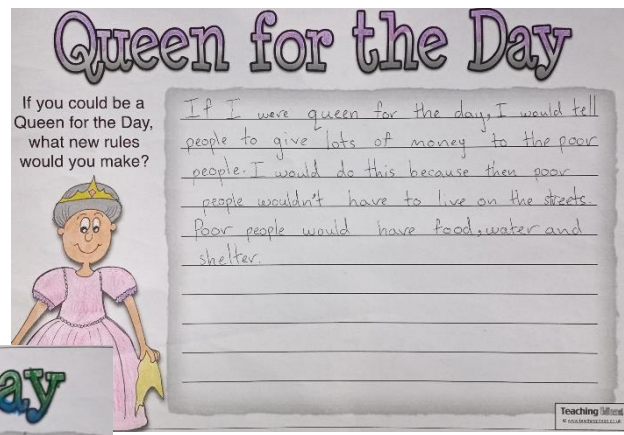 Queen for the Day
If you could be a
Queen for the Day,
what new rules
would you make?
If I were queen for the day, I would tell
people to give lots of money to the poor
people. I would do this because then poor
people wouldn't have to live on the streets.
Poor people would have food, water and
shelter.
ay
Teaching